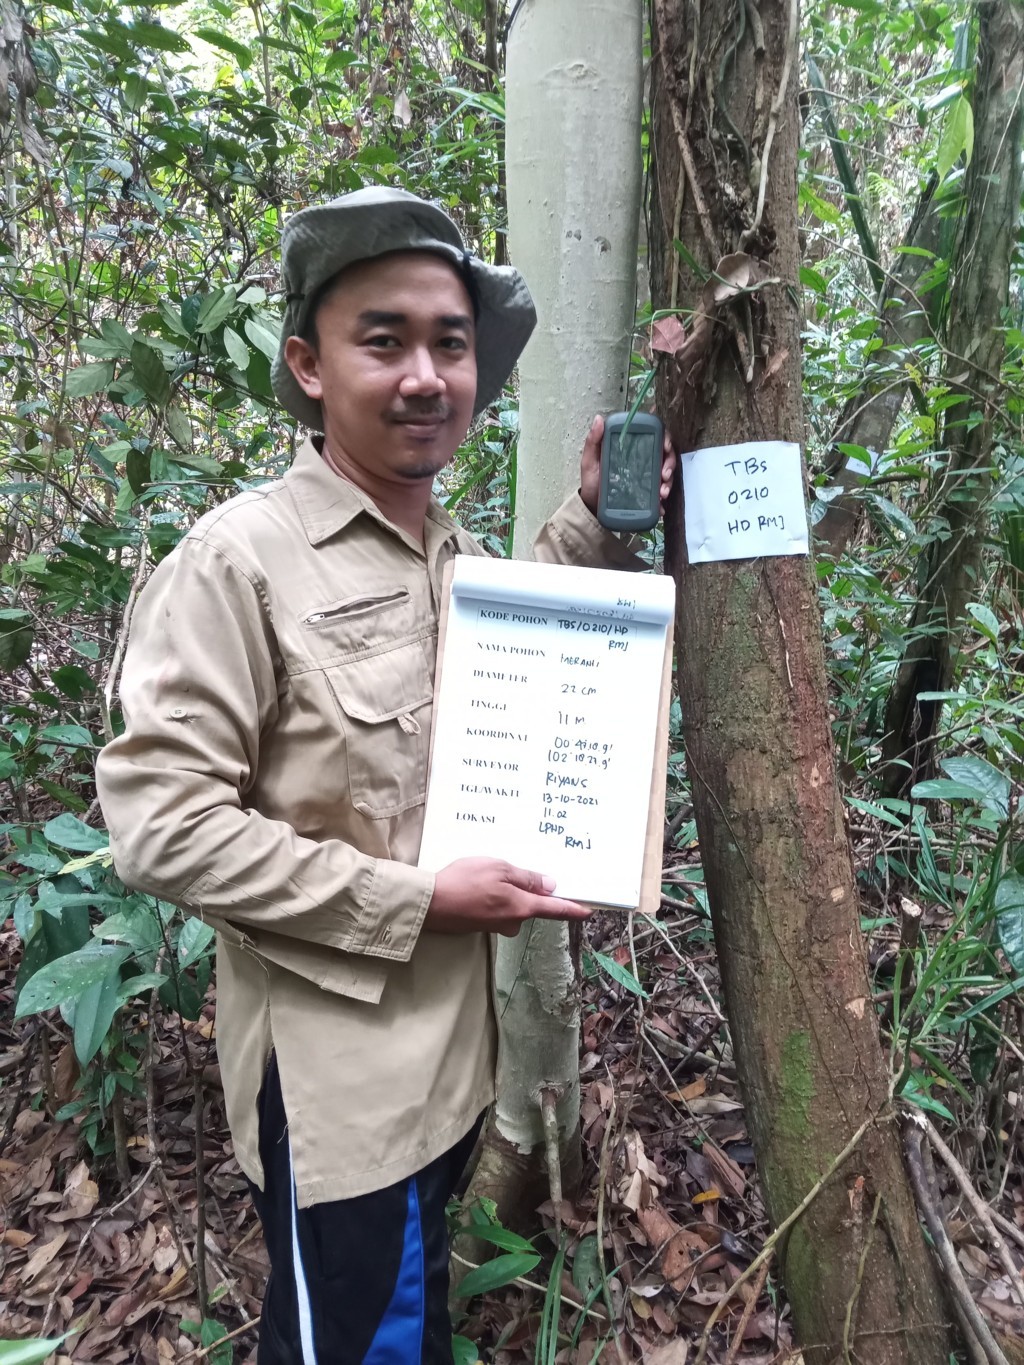 TBS
0210
HD RMJ
KODE POHON TBS/0210/HD
RMJ
NAMA POHON MERANTI
DIAMETER 22 CM
TINGGI 11 M
KOORDINAT
SURVEYOR RIYANS
TGL/WAKTU 13-10-2021
11.02
LOKASI LPHD
RMJ